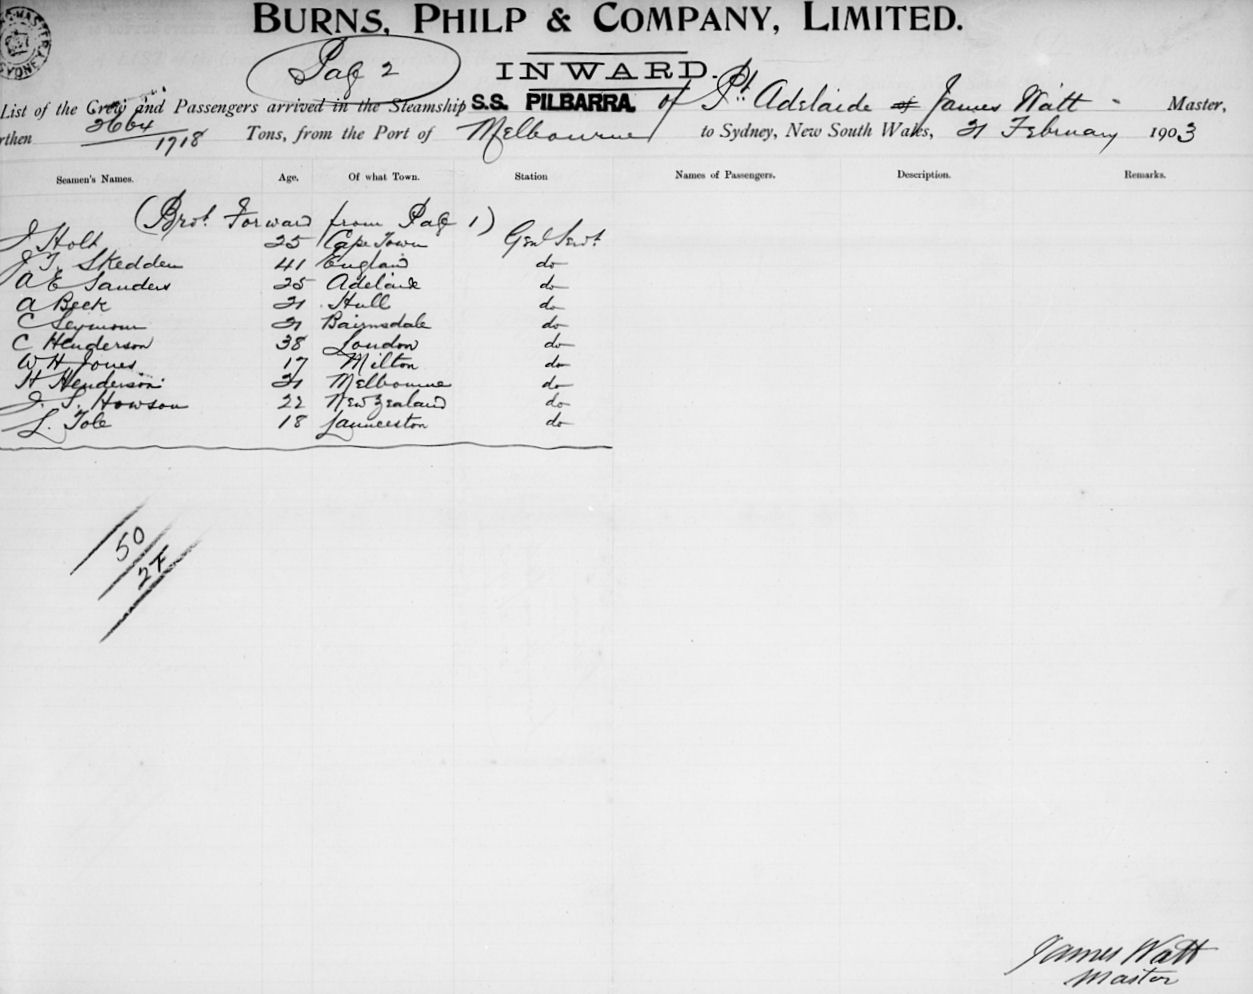 BURNS, PHILP & COMPANY, LIMITED.
Pag 2
INWARD.
List of the Crew and Passengers arrived in the Steamship S.S. PILBARRA. of Pt. Adelaide of James Watt - Master,
rthen 2664/1718 Tons, from the Port of Melbourne to Sydney, New South Wales, 21 February 1903
Seamen's Names. Age. Of what Town. Station Names of Passengers. Description. Remarks.
(Brot. Forward from Pag 1)
J Holt 25 Cape Town Genl Servt
J T. Skedden 41 England do
A E Sanders 25 Adelaide do
A Beck 21 Hull do
C Seymour 21 Bairnsdale do
C Henderson 38 London do
W H Jones 17 Milton do
H Henderson 21 Melbourne do
J. S. Howson 22 New Zealand do
L. Tole 18 Launceston do
50
24
James Watt
Master